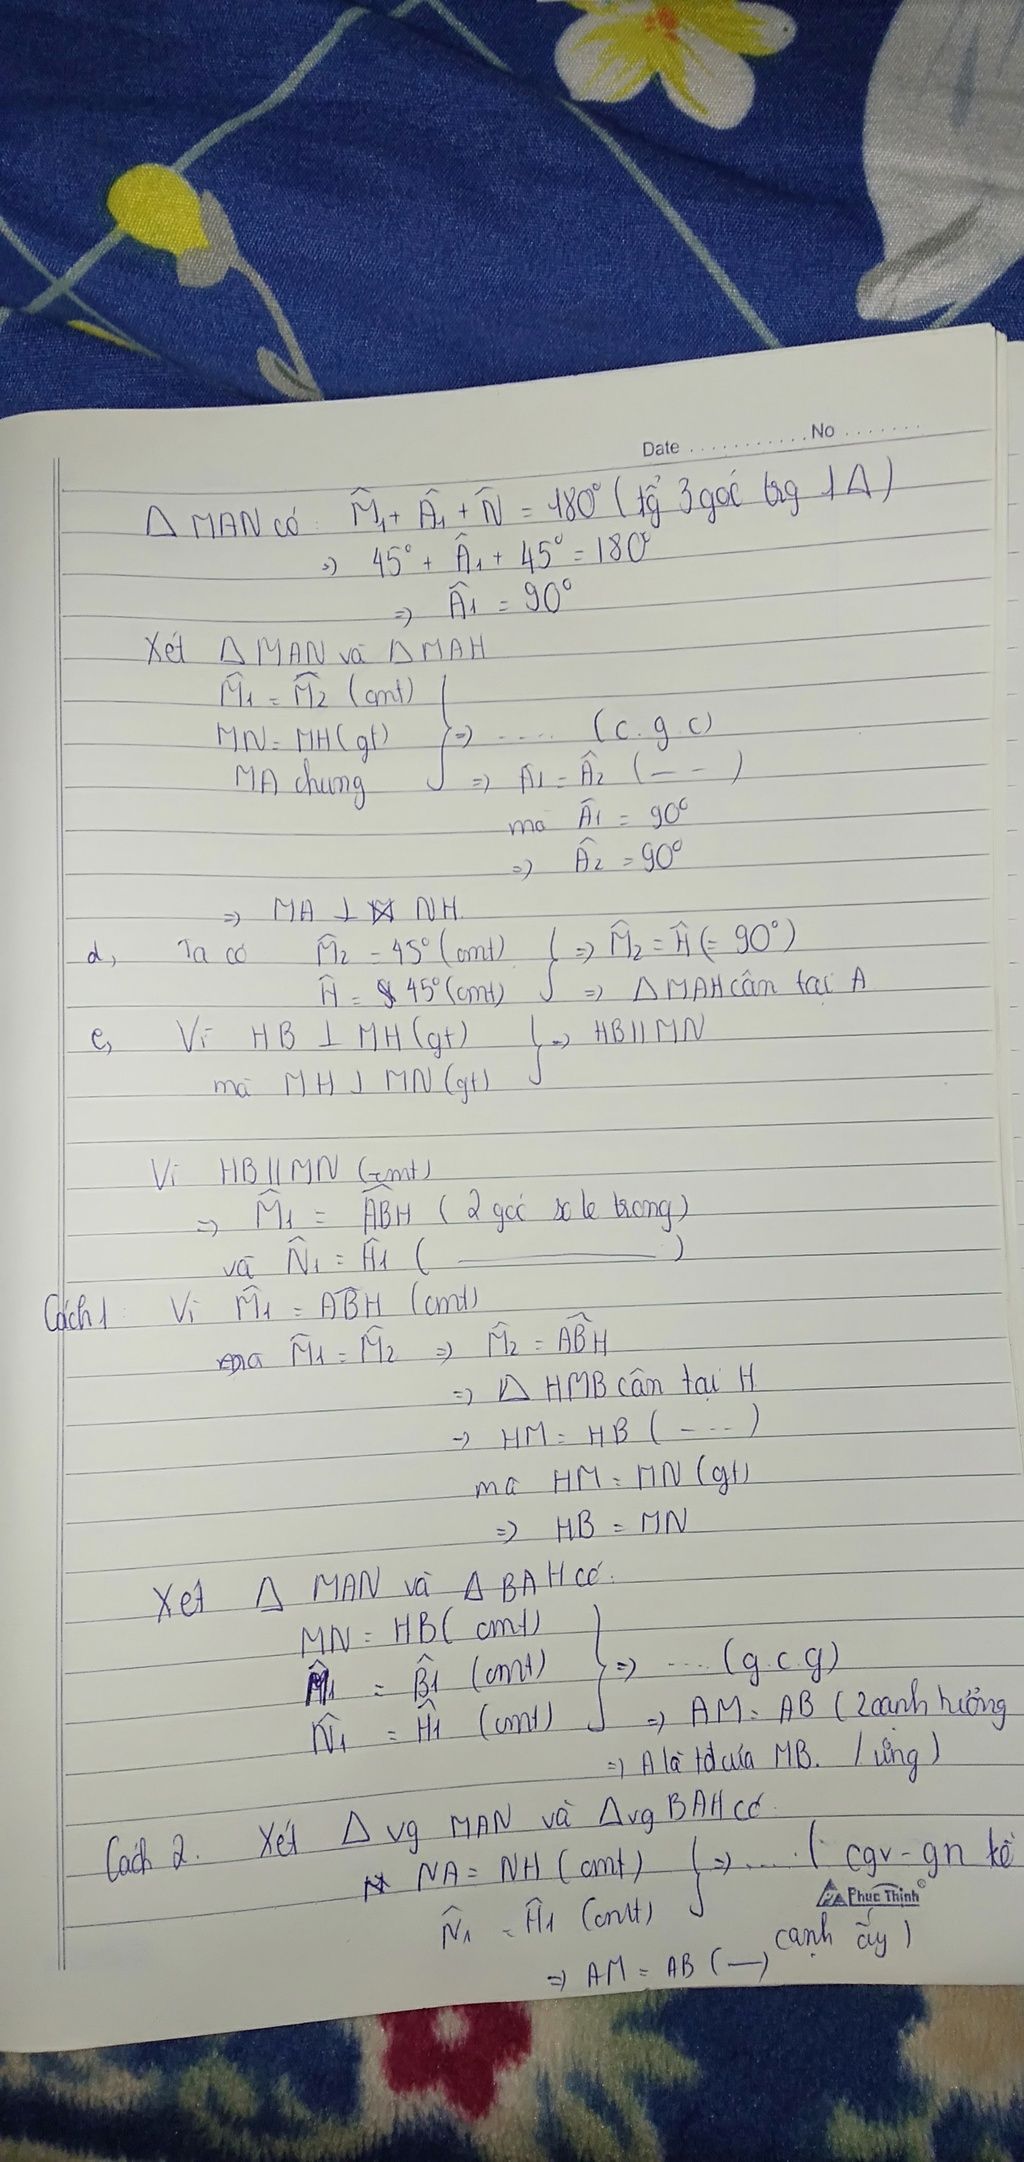 Date ............ No ........
Δ MAN có: M̂₁ + Â₁ + N̂ = 180° (tổ 3 góc trg 1 Δ)
=> 45° + Â₁ + 45° = 180°
=> Â₁ = 90°
Xét Δ MAN và Δ MAH
M̂₁ = M̂₂ (cmt)
MN = MH (gt) } => .... (c.g.c)
MA chung => Â₁ = Â₂ (- -)
mà Â₁ = 90°
=> Â₂ = 90°
=> MA ⊥ NH
d, Ta có M̂₂ = 45° (cmt) } => M̂₂ = Ĥ (= 90°)
Ĥ = 45° (cmt) => Δ MAH cân tại A
e, Vì HB ⊥ MH (gt) } => HB // MN
mà MH ⊥ MN (gt)
Vì HB // MN (cmt)
=> M̂₁ = ABH (2 góc so le trong)
và N̂₁ = Ĥ₁ ( ——— )
Cách 1: Vì M̂₁ = ABH (cmt)
mà M̂₁ = M̂₂ => M̂₂ = ABH
=> Δ HMB cân tại H
=> HM = HB (- - -)
mà HM = MN (gt)
=> HB = MN
Xét Δ MAN và Δ BAH có:
MN = HB (cmt)
M̂₁ = B̂₁ (cmt) } => .... (g.c.g)
N̂₁ = Ĥ₁ (cmt) => AM = AB (2 cạnh tương
=> A là tđ của MB. / ứng)
Cách 2. Xét Δ vg MAN và Δ vg BAH có
NA = NH (cmt) } => .... (cgv - gn kề
Phuc Thinh
N̂₁ = Ĥ₁ (cmt) cạnh ấy)
=> AM = AB (—)